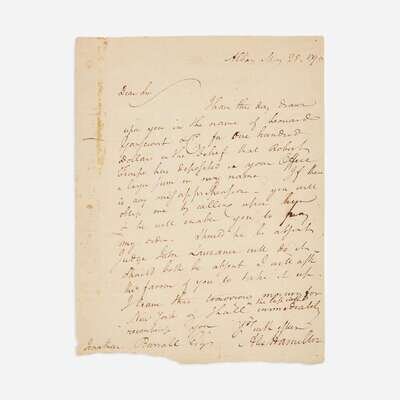 Albany May 28. 179
Dear Sir
I have this day drawn
upon you in the name of Leonard
for One hundred
Dollars in the belief that Robert
has deposited in your Office
a large sum in my name. If there
is any misapprehension - you will
oblige me by calling upon
& he will enable you to pay
my order. Should he be absent
Judge John Laurance will do it.
Should both be absent I will ask
the favour of you to take it up.
I leave this tomorrow morning for
New York & shall immediately
reimburse you
Yrs with esteem
Alex Hamilton
Jonathan Burrall Esqr